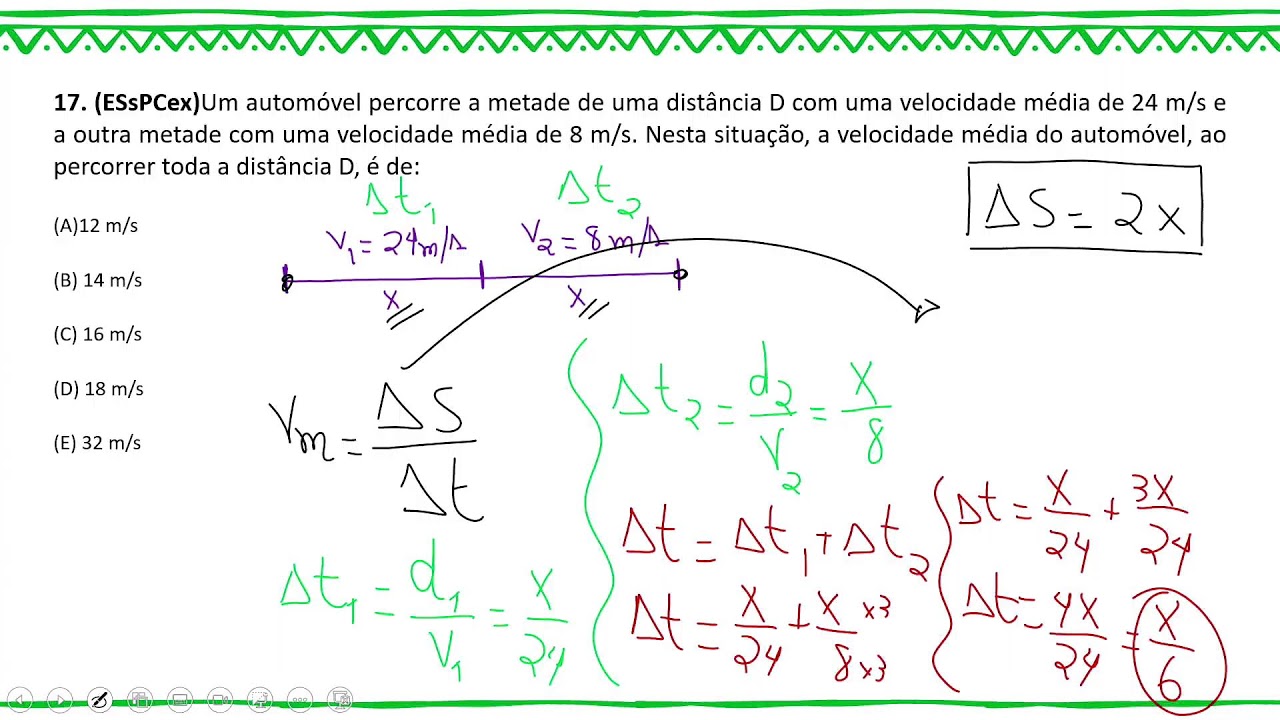 17. (ESsPCex)Um automóvel percorre a metade de uma distância D com uma velocidade média de 24 m/s e
a outra metade com uma velocidade média de 8 m/s. Nesta situação, a velocidade média do automóvel, ao
percorrer toda a distância D, é de:
(A)12 m/s
(B) 14 m/s
(C) 16 m/s
(D) 18 m/s
(E) 32 m/s
Δt₁ Δt₂
V₁ = 24m/s V₂ = 8m/s
x x
ΔS = 2x
Vm = ΔS/Δt
Δt₁ = d₁/V₁ = x/24
Δt₂ = d₂/V₂ = x/8
Δt = Δt₁ + Δt₂
Δt = x/24 + x/8 x3 x3
Δt = x/24 + 3x/24
Δt = 4x/24 = x/6